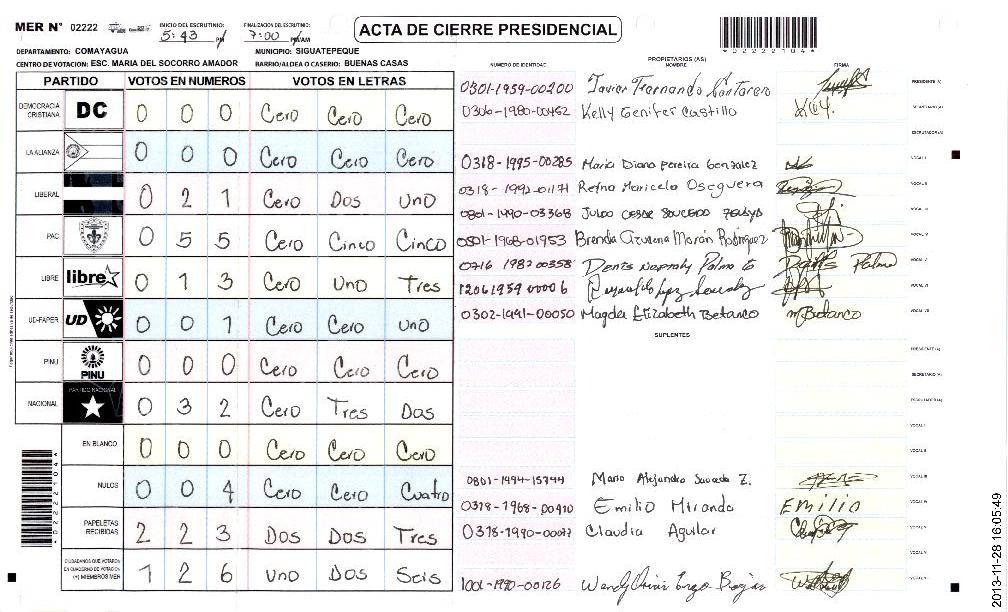 MER N° 02222 INICIO DEL ESCRUTINIO: 5:43 PM FINALIZACION DEL ESCRUTINIO: 7:00 PM/AM
ACTA DE CIERRE PRESIDENCIAL
*0222210 4*
DEPARTAMENTO: COMAYAGUA MUNICIPIO: SIGUATEPEQUE
CENTRO DE VOTACION: ESC. MARIA DEL SOCORRO AMADOR BARRIO/ALDEA O CASERIO: BUENAS CASAS
PARTIDO VOTOS EN NUMEROS VOTOS EN LETRAS
DEMOCRACIA CRISTIANA DC 0 0 0 Cero Cero Cero
LA ALIANZA 0 0 0 Cero Cero Cero
LIBERAL 0 2 1 Cero Dos Uno
PAC 0 5 5 Cero Cinco Cinco
LIBRE libre 0 1 3 Cero Uno Tres
UD-FAPER UD 0 0 1 Cero Cero Uno
PINU PINU 0 0 0 Cero Cero Cero
NACIONAL PARTIDO NACIONAL 0 3 2 Cero Tres Dos
EN BLANCO 0 0 0 Cero Cero Cero
NULOS 0 0 4 Cero Cero Cuatro
PAPELETAS RECIBIDAS 2 2 3 Dos Dos Tres
CIUDADANOS QUE VOTARON EN CUADERNO DE VOTACION (+) MIEMBROS MER 1 2 6 Uno Dos Seis
PROPIETARIOS (AS)
NUMERO DE IDENTIDAD NOMBRE FIRMA
0301-1959-00200 Javier Fernando PRESIDENTE (A)
0306-1980-00452 Kelly Genifer Castillo SECRETARIO (A)
ESCRUTADOR (A)
0318-1995-00285 Maria Diana pereira Gonzalez VOCAL I
0318-1992-01171 Reina Maricela Oseguera VOCAL II
0801-1990-03368 Julio Cesar VOCAL III
0801-1968-01953 Brenda Azucena Morán Rodriguez VOCAL IV
0716 1982 00358 Denis Palma VOCAL V
1206 1959 00006 VOCAL VI
0302-1991-00050 Magda Elizabeth Betanco M Betanco VOCAL VII
SUPLENTES
PRESIDENTE (A)
SECRETARIO (A)
ESCRUTADOR (A)
VOCAL I
VOCAL II
0801-1994-15744 Mario Alejandro Sauceda Z. VOCAL III
0318-1968-00910 Emilio Miranda EMILIO VOCAL IV
0318-1990-00077 Claudia Aguilar VOCAL V
VOCAL VI
1001-1990-00126 Wendy VOCAL VII
2013-11-28 16:05:49